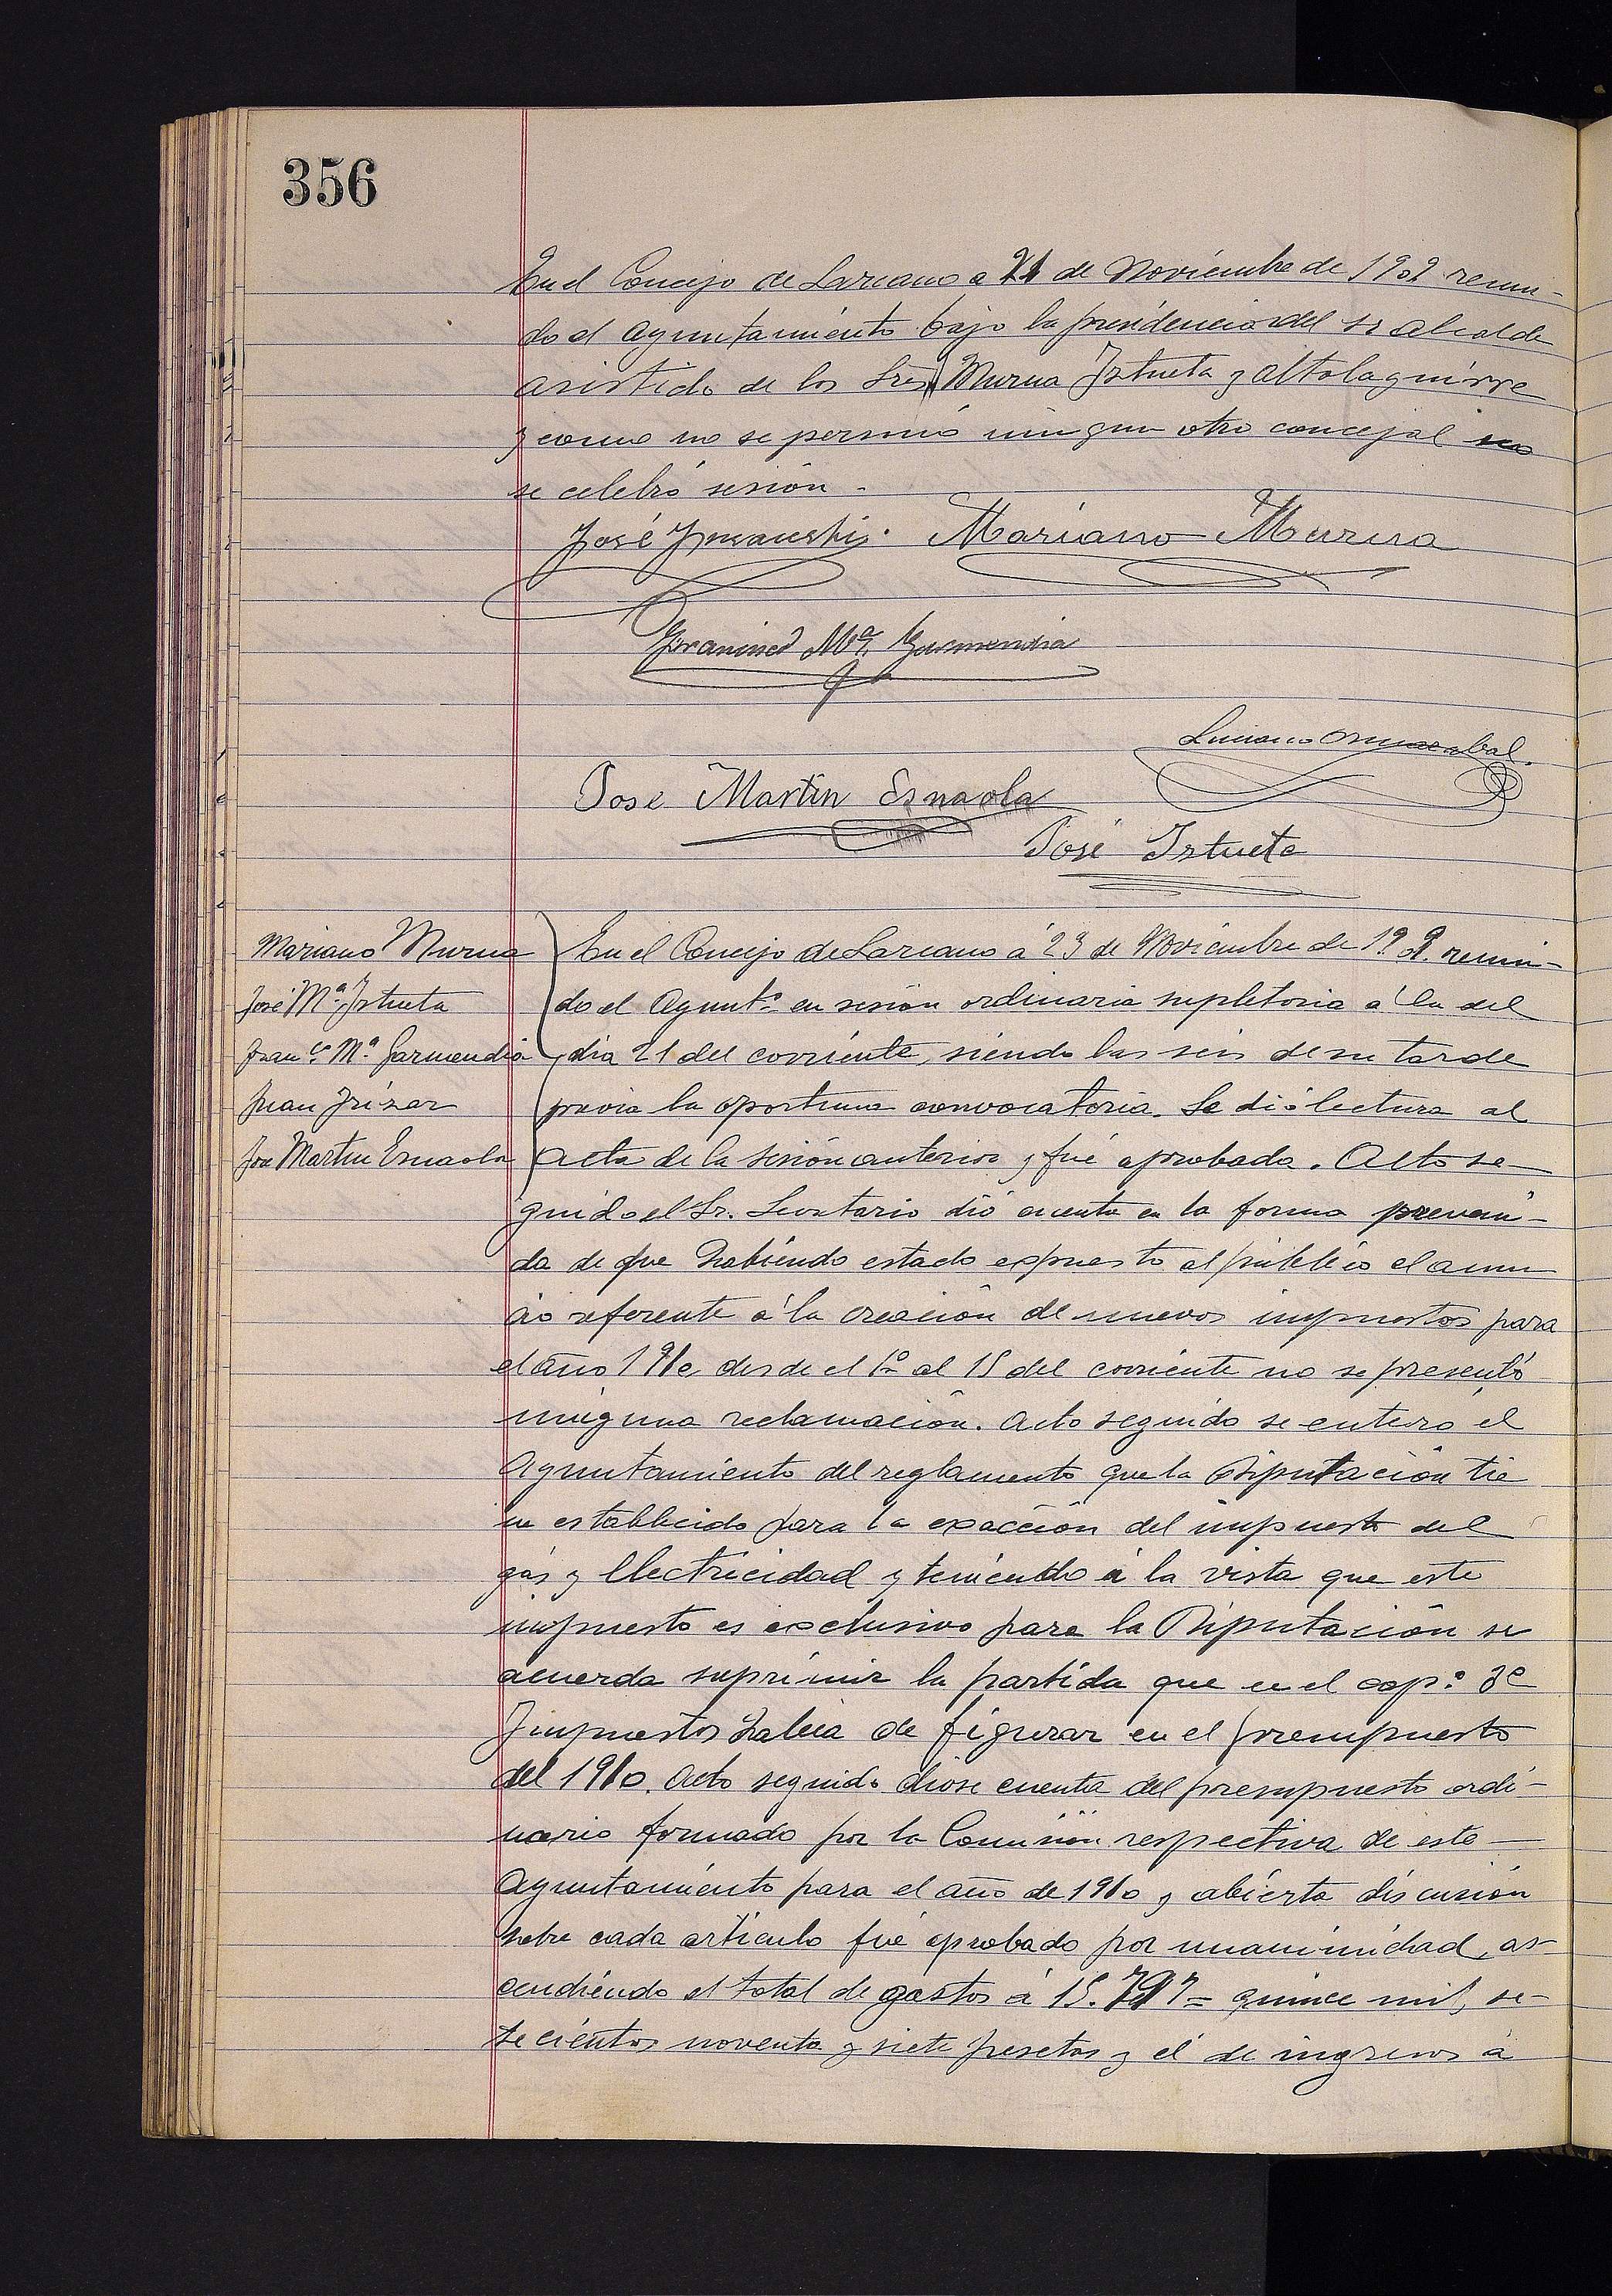 356
En el Concejo de Lazcano a 21 de Noviembre de 1909 reuni-
do el Ayuntamiento bajo la presidencia del Sr Alcalde
asistido de los Sres Murua Iztueta y Altolaguirre
y como no se personó ningun otro concejal no
se celebró sesión.
José Mariano Murua
Francisco Mª Garmendia
Luciano
Jose Martin Esnaola
José Iztueta
Mariano Murua
José Mª Iztueta
Franco Mª Garmendia
Juan Irizar
Jose Martin Esnaola
En el Concejo de Lazcano á 23 de Noviembre de 1909. reuni-
do el Ayuntº en sesión ordinaria supletoria a la del
dia 21 del corriente, siendo las seis de su tarde
previa la oportuna convocatoria. Se dió lectura al
acta de la sesión anterior y fué aprobada. Acto se-
guido el Sr. Secretario dió cuenta en la forma preveni-
da de que habiendo estado expuesto al público el anun
cio referente á la creación de nuevos impuestos para
el año 1910 desde el 1º al 15 del corriente no se presentó
ninguna reclamación. Acto seguido se enteró el
Ayuntamiento del reglamento que la Diputación tie
ne establecido para la exacción del impuesto del
gás y electricidad y teniendo á la vista que este
impuesto es exclusivo para la Diputación se
acuerda suprimir la partida que en el cap.º 3º
Impuestos habia de figurar en el presupuesto
del 1910. Acto seguido diose cuenta del presupuesto ordi-
nario formado por la Comisión respectiva de este
Ayuntamiento para el año de 1910 y abierta discusión
sobre cada artículo fué aprobado por unanimidad, as-
cendiendo el total de gastos á 15.797= quince mil, se-
tecientos noventa y siete pesetas y el de ingresos á